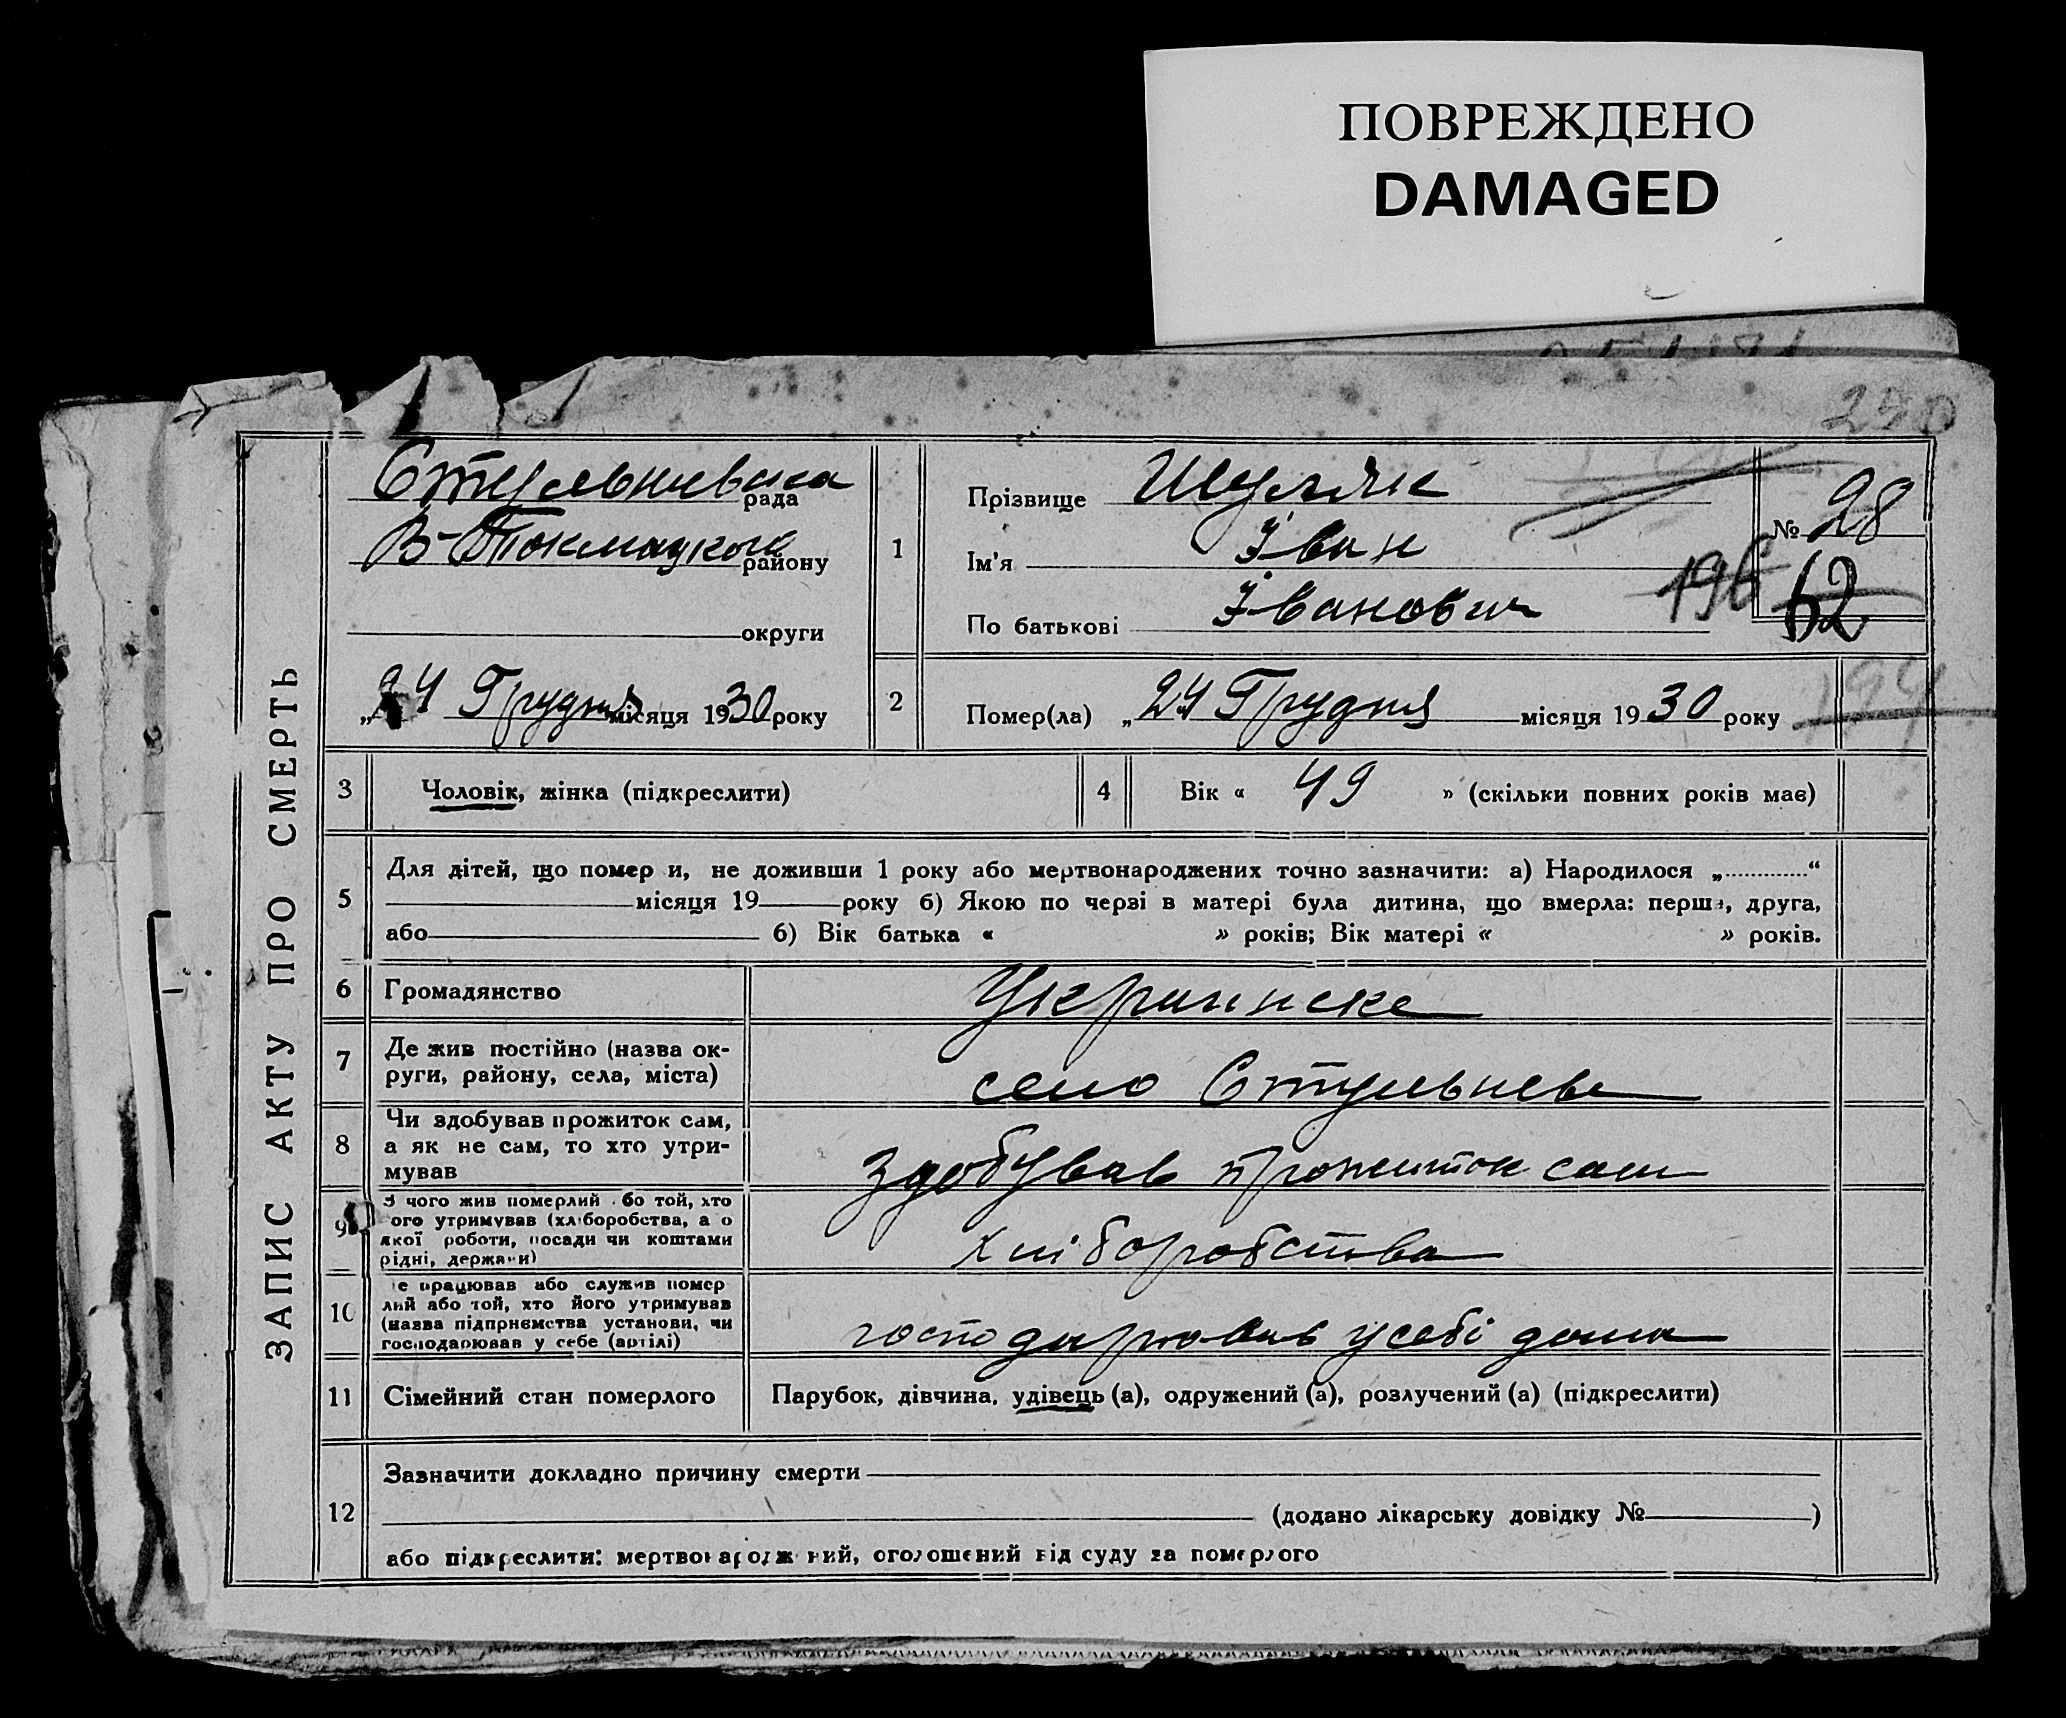 ПОВРЕЖДЕНО
DAMAGED
250
ЗАПИС АКТУ ПРО СМЕРТЬ
Стульнивска рада
В-Токмацкого району
округи
„24 Грудня місяця 1930 року
1
Прізвище Шуляк
Ім'я Іван
По батькові Іванович
№ 28
196 62
194
2 Помер(ла) „24 Грудня місяця 1930 року
3 Чоловік, жінка (підкреслити)
4 Вік « 49 » (скільки повних років має)
5 Для дітей, що помер и, не доживши 1 року або мертвонароджених точно зазначити: а) Народилося „............“
місяця 19 року б) Якою по черзі в матері була дитина, що вмерла: перша, друга,
або б) Вік батька « » років; Вік матері « » років.
6 Громадянство Украинске
7 Де жив постійно (назва ок-
руги, району, села, міста)
село Стульневе
8 Чи здобував прожиток сам,
а як не сам, то хто утри-
мував
Здобував прожиток сам
9 З чого жив померлий або той, хто
ого утримував (хліборобства, а о
якої роботи, посади чи коштами
рідні, держави)
хліборобства
10 е працював або служив помер
лий або той, хто його утримував
(назва підприємства установи, чи
господарював у себе (артілі)
господарював у себі дома
11 Сімейний стан померлого Парубок, дівчина, удівець (а), одружений (а), розлучений (а) (підкреслити)
12 Зазначити докладно причину смерти
(додано лікарську довідку № )
або підкреслити: мертвонароджений, оголошений від суду за померлого